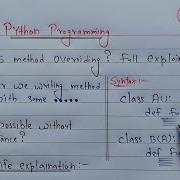 Python Programming
method overriding? Full explain
we writing method
with some .....
possible without
life explaination :-
Syntax :-
class A():
def f
class B(A):
def f